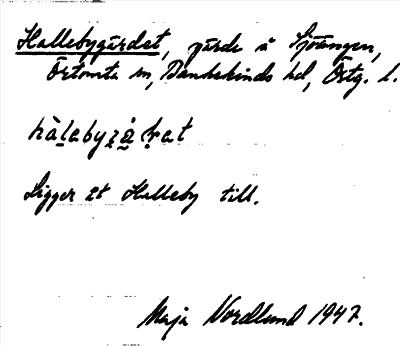 Hallebygärdet, gärde å Sjöängen,
Örtomta sn, Bankekinds hd, Östg. l.
hàlabyjä̀ḍat
Ligger åt Halleby till.
Maja Nordlund 1947.